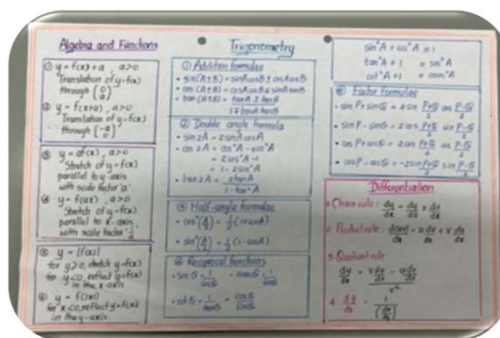 Algebra and Functions
① y = f(x)+a , a>0
Translation of y=f(x)
through (0 a)
② y = f(x+a) , a>0
Translation of y=f(x)
through (-a 0)
③ y = af(x), a>0
Stretch of y=f(x)
parallel to y-axis
with scale factor 'a'.
④ y = f(ax) , a>0
Stretch of y=f(x)
parallel to x-axis
with scale factor 1/a
⑤ y = |f(x)|
for y≥0, sketch y=f(x)
for y<0, reflect y=f(x)
in the x-axis
⑥ y = f(|x|)
for x<0, reflect y=f(x)
in the y-axis.
Trigonometry
① Addition formulae
• sin(A±B) = sinAcosB ± cosAsinB
• cos(A±B) = cosAcosB ∓ sinAsinB
• tan(A±B) = tanA ± tanB / 1 ∓ tanAtanB
② Double angle formula
• sin2A = 2sinAcosA
• cos2A = cos²A - sin²A
= 2cos²A - 1
= 1 - 2sin²A
• tan2A = 2tanA / 1 - tan²A
③ Half-angle formula
• cos²(A/2) = 1/2 (1+cosA)
• sin²(A/2) = 1/2 (1-cosA)
④ Reciprocal functions
sin²A + cos²A = 1
tan²A + 1 = sec²A
cot²A + 1
⑥ Factor formulae
• sinP + sinQ = 2 sin P+Q/2 cos P-Q/2
• sinP - sinQ = 2 cos P+Q/2 sin P-Q/2
• cosP + cosQ = 2 cos P+Q/2 cos P-Q/2
• cosP - cosQ = -2 sin P+Q/2 sin P-Q/2
Differentiation
1 Chain rule : dy/dx = dy/du x du/dx
2 Product rule : d(uv)/dx = u dv/dx + v du/dx
3 Quotient rule
dy/dx = v du/dx - u dv/dx / v²
4 dy/dx = 1 / (dx/dy)